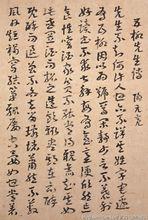 五柳先生傳 陶元亮
先生不知何許人也亦不詳其姓字宅邊
有五柳因以為號焉閑靜少言不慕榮利
好讀書不求甚解每有會意便欣然忘
食性嗜酒家貧不能常得親舊知其
如此或置酒而招之造飲輒盡期在必醉
既醉而退曾不吝情去留環堵蕭然不蔽
風日短褐穿結簞瓢屢空晏如也常著